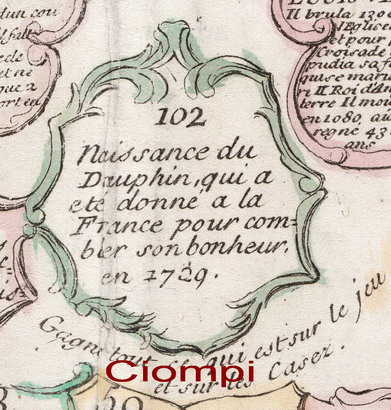 dun cou
Il brula 1300
l'Eglise
et pour
Croisade
pudia sa f
quise mari
ri II Roi d'An
terre Il mou
en 1080, aü
regne 43
ans
102
Naissance du
Dauphin, qui a
ete donné a la
France pour com=
bler son bonheur.
en 1729.
Gagne tout ce qui est sur le jeu
et sur les Casez.
Ciompi